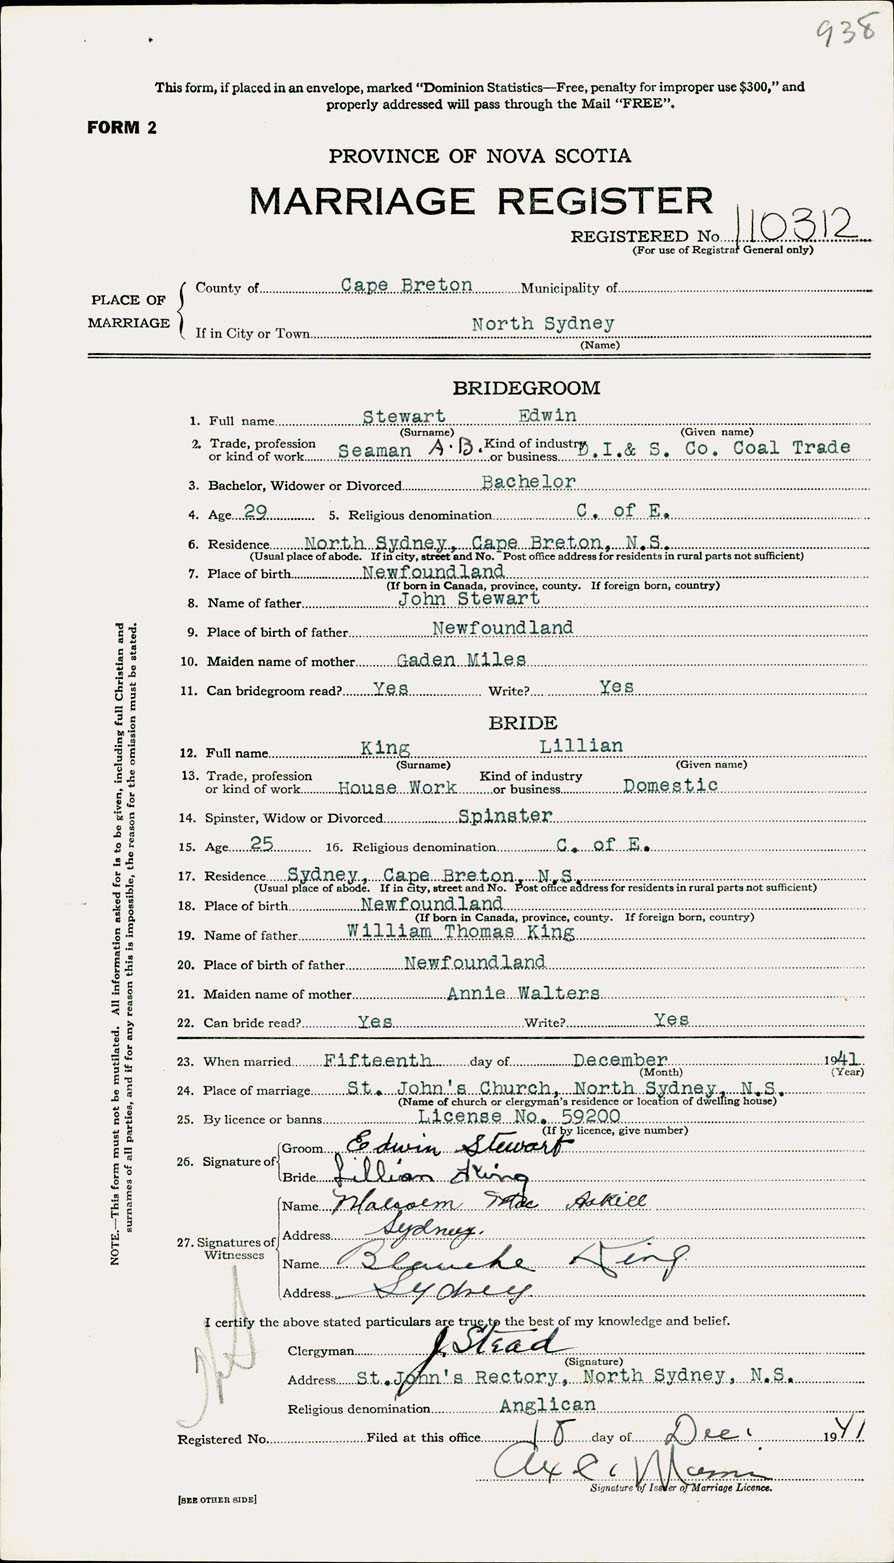 938
This form, if placed in an envelope, marked "Dominion Statistics—Free, penalty for improper use $300," and
properly addressed will pass through the Mail "FREE".
FORM 2
PROVINCE OF NOVA SCOTIA
MARRIAGE REGISTER
REGISTERED No. 110312
(For use of Registrar General only)
PLACE OF MARRIAGE
County of Cape Breton Municipality of
If in City or Town North Sydney
(Name)
BRIDEGROOM
1. Full name Stewart Edwin
(Surname) (Given name)
2. Trade, profession or kind of work Seaman A.B. Kind of industry or business D.I.& S. Co. Coal Trade
3. Bachelor, Widower or Divorced Bachelor
4. Age 29 5. Religious denomination C. of E.
6. Residence North Sydney, Cape Breton, N.S.
(Usual place of abode. If in city, street and No. Post office address for residents in rural parts not sufficient)
7. Place of birth Newfoundland
(If born in Canada, province, county. If foreign born, country)
8. Name of father John Stewart
9. Place of birth of father Newfoundland
10. Maiden name of mother Gaden Miles
11. Can bridegroom read? Yes Write? Yes
BRIDE
12. Full name King Lillian
(Surname) (Given name)
13. Trade, profession or kind of work House Work Kind of industry or business Domestic
14. Spinster, Widow or Divorced Spinster
15. Age 25 16. Religious denomination C. of E.
17. Residence Sydney, Cape Breton, N.S.
(Usual place of abode. If in city, street and No. Post office address for residents in rural parts not sufficient)
18. Place of birth Newfoundland
(If born in Canada, province, county. If foreign born, country)
19. Name of father William Thomas King
20. Place of birth of father Newfoundland
21. Maiden name of mother Annie Walters
22. Can bride read? Yes Write? Yes
23. When married Fifteenth day of December 1941
(Month) (Year)
24. Place of marriage St. John's Church, North Sydney, N.S.
(Name of church or clergyman's residence or location of dwelling house)
25. By licence or banns License No. 59200
(If by licence, give number)
26. Signature of
Groom Edwin Stewart
Bride Lillian King
27. Signatures of Witnesses
Name Malcolm Mac Askill
Address Sydney.
Name Blanche King
Address Sydney
I certify the above stated particulars are true to the best of my knowledge and belief.
Clergyman J. Stead
(Signature)
Address St.John's Rectory, North Sydney, N.S.
Religious denomination Anglican
Registered No. Filed at this office 18 day of Dec. 1941
Signature of Issuer of Marriage Licence.
[SEE OTHER SIDE]
NOTE.—This form must not be mutilated. All information asked for is to be given, including full Christian and
surnames of all parties, and if for any reason this is impossible, the reason for the omission must be stated.